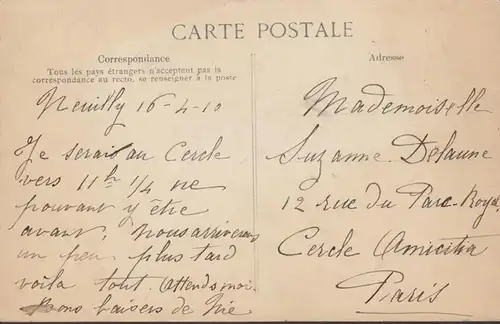 CARTE POSTALE
Correspondance
Tous les pays étrangers n'acceptent pas la
correspondance au recto, se renseigner à la poste
Neuilly 16-4-10
Je serais au Cercle
vers 11h 1/4 ne
pouvant y être
avant, nous arriverons
un peu plus tard
voila tout. Attends moi.
Bons baisers de
Adresse
Mademoiselle
Suzanne Delaune
12 rue du Parc-Royal
Cercle Amicitia
Paris